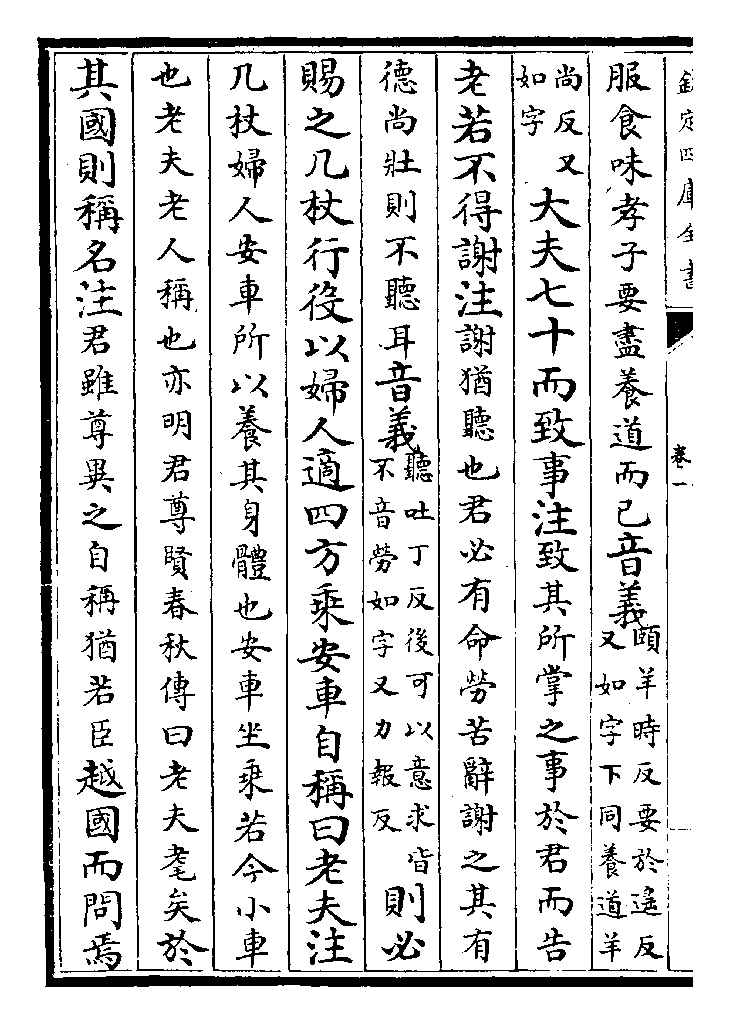 欽定四庫全書
卷一
服食味孝子要盡養道而已音義頤羊時反要於遙反又如字下同養道羊
尚反又如字大夫七十而致事注致其所掌之事於君而告
老若不得謝注謝猶聽也君必有命勞苦辭謝之其有
德尚壯則不聽耳音義聽吐丁反後可以意求皆不音勞如字又力報反則必
賜之几杖行役以婦人適四方乘安車自稱曰老夫注
几杖婦人安車所以養其身體也安車坐乘若今小車
也老夫老人稱也亦明君尊賢春秋傳曰老夫耄矣於
其國則稱名注君雖尊異之自稱猶若臣越國而問焉